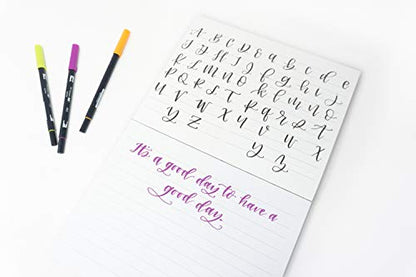 A B C D E a b c d e
F G H I J f g h i j
K L M N O k l m n o
P Q R S T p q r s t
U V W X u v w x
Y Z y z
It's a good day to have a
good day.